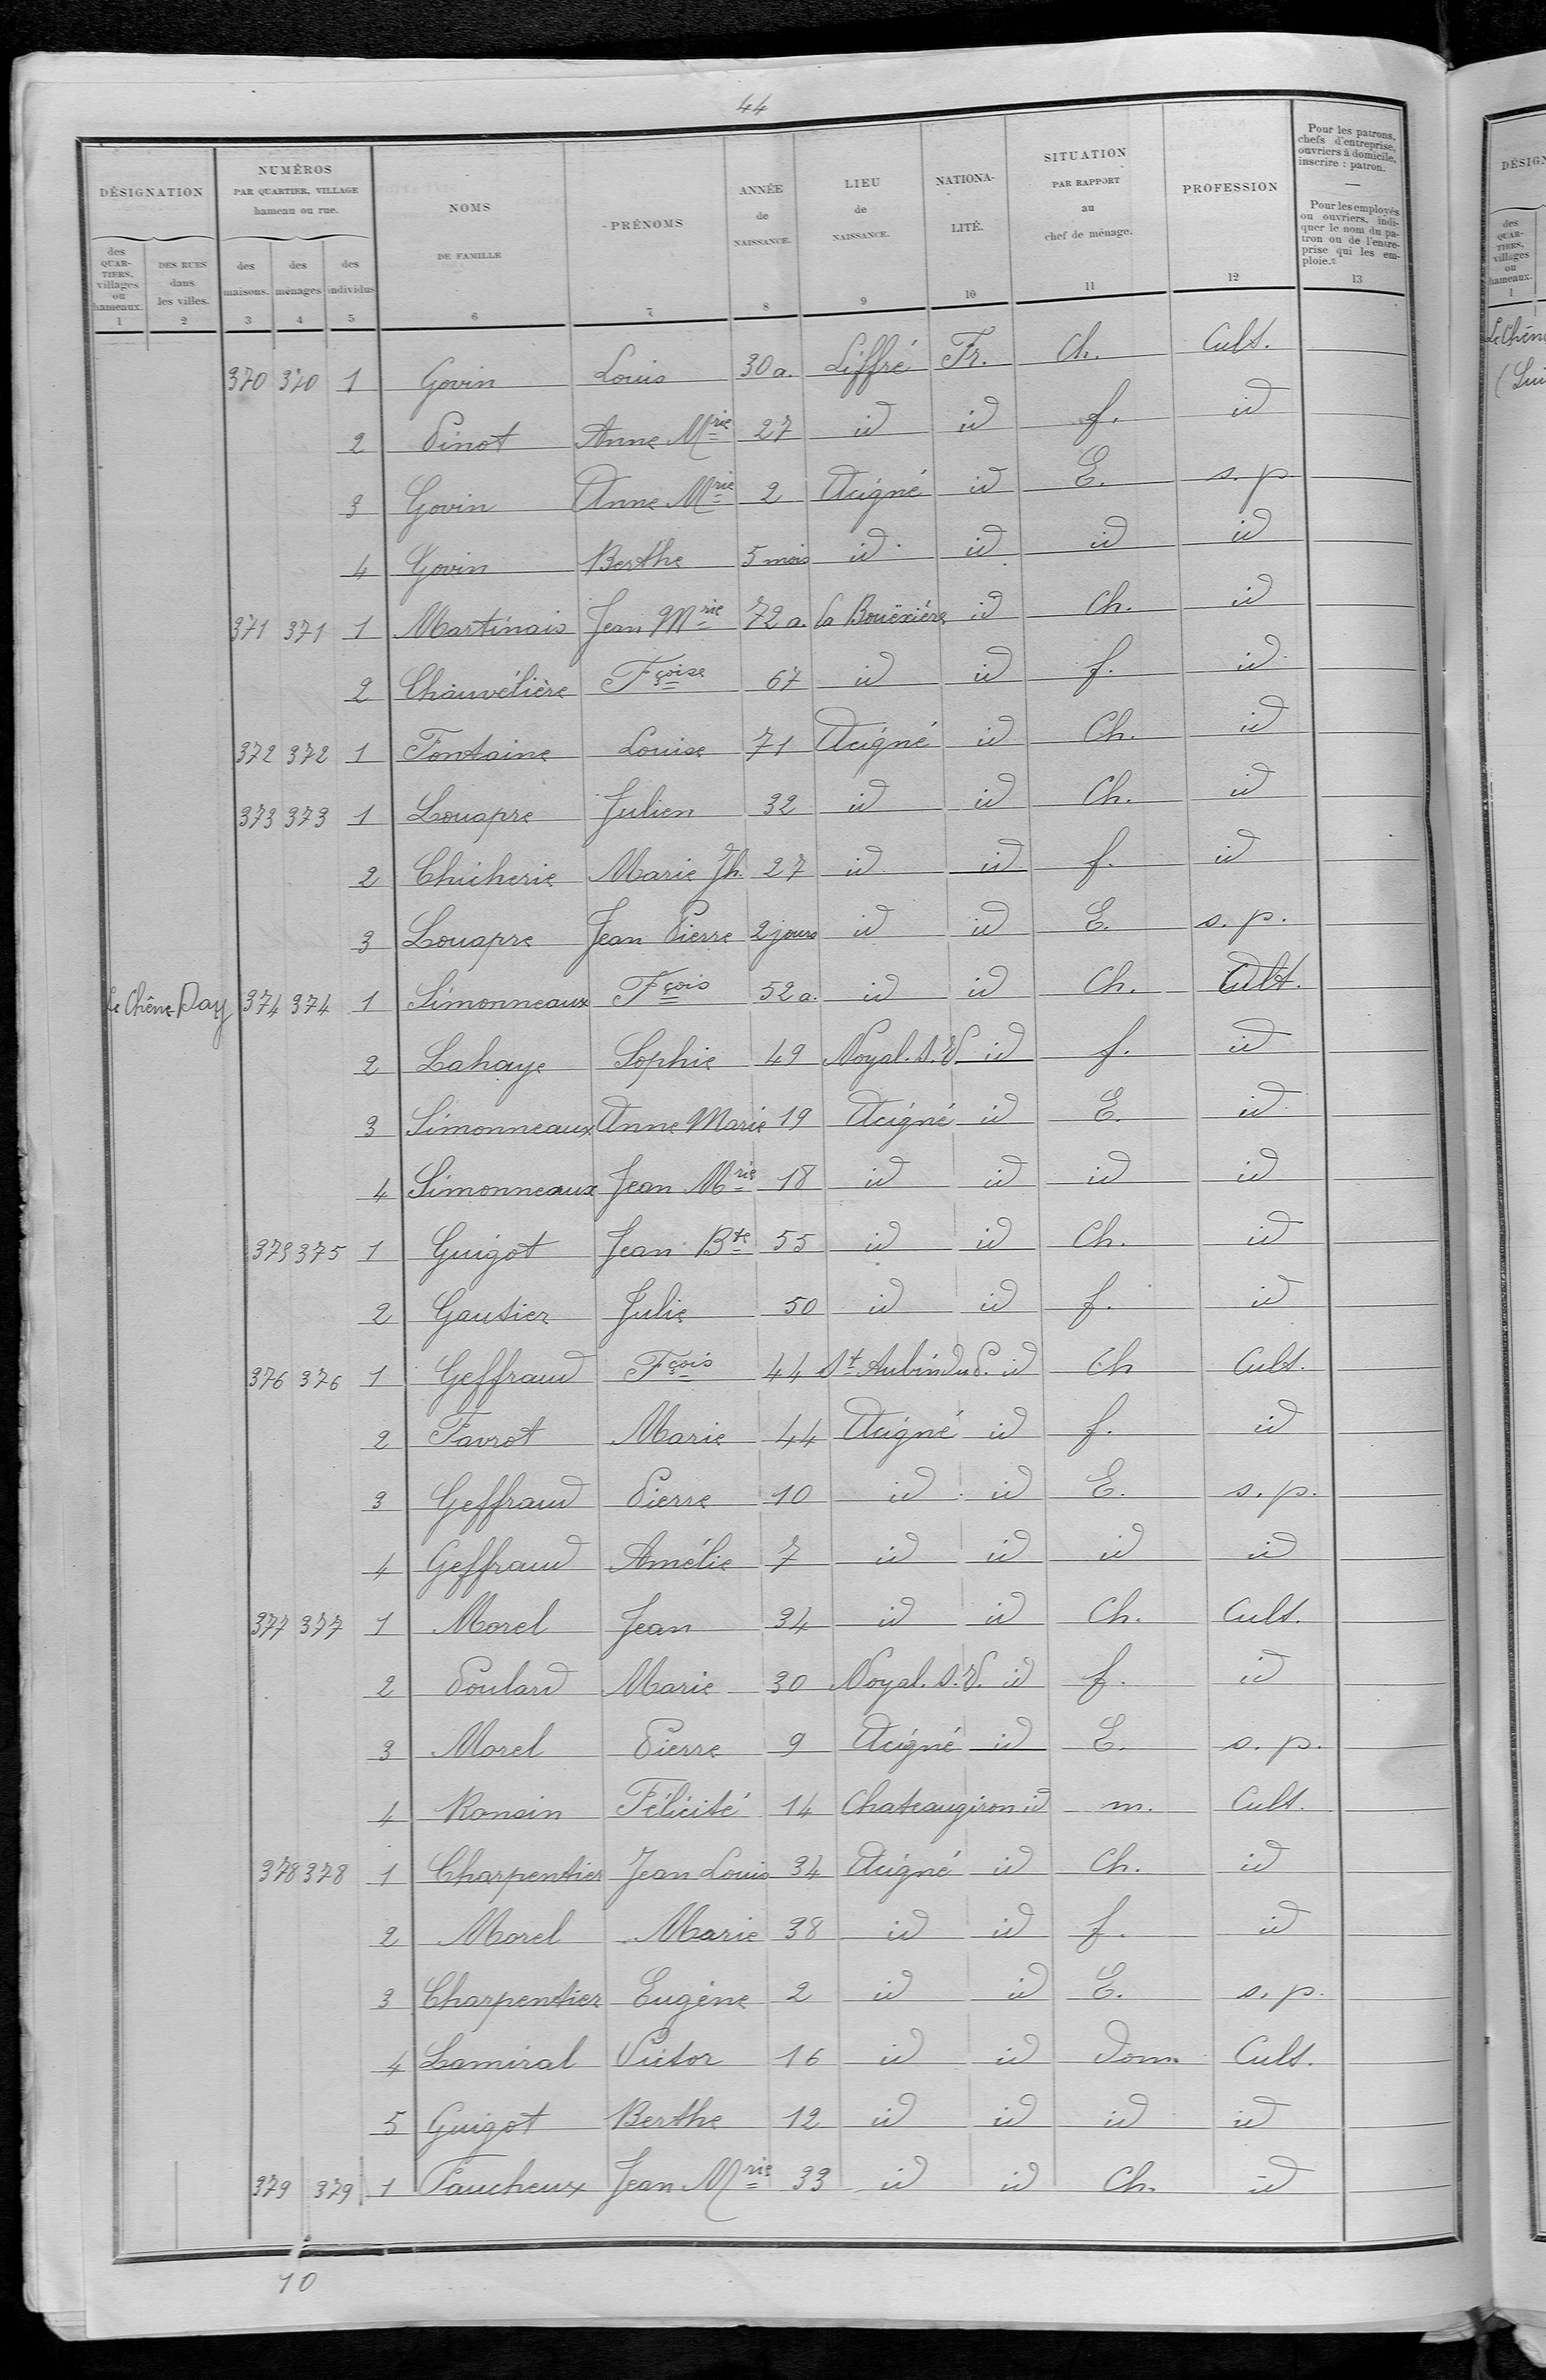 44
DÉSIGNATION
NUMÉROS PAR QUARTIER, VILLAGE hameau ou rue.
NOMS DE FAMILLE
PRÉNOMS
ANNÉE de NAISSANCE.
LIEU de NAISSANCE.
NATIONA-LITÉ.
SITUATION PAR RAPPORT au chef de ménage.
PROFESSION
Pour les patrons, chefs d'entreprise, ouvriers à domicile, inscrire : patron. — Pour les employés ou ouvriers, indiquer le nom du patron ou de l'entreprise qui les emploie.
des QUARTIERS, villages ou hameaux.
DES RUES dans les villes.
des maisons.
des ménages
des individus
1 2 3 4 5 6 7 8 9 10 11 12 13
370 370 1 Govin Louis 30 a. Liffré Fr. Ch. Cult.
2 Pinot Anne Mrie 27 id id f. id
3 Govin Anne Mrie 2 Acigné id E. s. p
4 Govin Berthe 5 mois id id id id
371 371 1 Martinais Jean Mrie 72 a. La Bouëxière id Ch. id
2 Chauvélière Fçoise 67 id id f. id
372 372 1 Fontaine Louise 71 Acigné id Ch. id
373 373 1 Louapre Julien 32 id id Ch. id
2 Chicherie Marie Jh. 27 id id f. id
3 Louapre Jean Pierre 2 jours id id E. s. p.
Le Chêne-Day 374 374 1 Simonneaux Fçois 52 a. id id Ch. Cult.
2 Lahaye Sophie 49 Noyal. s. V. id f. id
3 Simonneaux Anne Marie 19 Acigné id E. id
4 Simonneaux Jean Mrie 18 id id id id
375 375 1 Guigot Jean Bte 55 id id Ch. id
2 Gautier Julie 50 id id f. id
376 376 1 Geffraud Fçois 44 St Aubin du P. id Ch Cult.
2 Favrot Marie 44 Acigné id f. id
3 Geffraud Pierre 10 id id E. s. p.
4 Geffraud Amélie 7 id id id id
377 377 1 Morel Jean 34 id id Ch. Cult.
2 Poulard Marie 30 Noyal. s. V. id f. id
3 Morel Pierre 9 Acigné id E. s. p.
4 Ronsin Félicité 14 Chateaugiron id m. Cult.
378 378 1 Charpentier Jean Louis 34 Acigné id Ch. id
2 Morel Marie 38 id id f. id
3 Charpentier Eugène 2 id id E. s. p.
4 Lamiral Victor 16 id id dom Cult.
5 Guigot Berthe 12 id id id id
379 379 1 Faucheux Jean Mrie 33 id id Ch. id
10